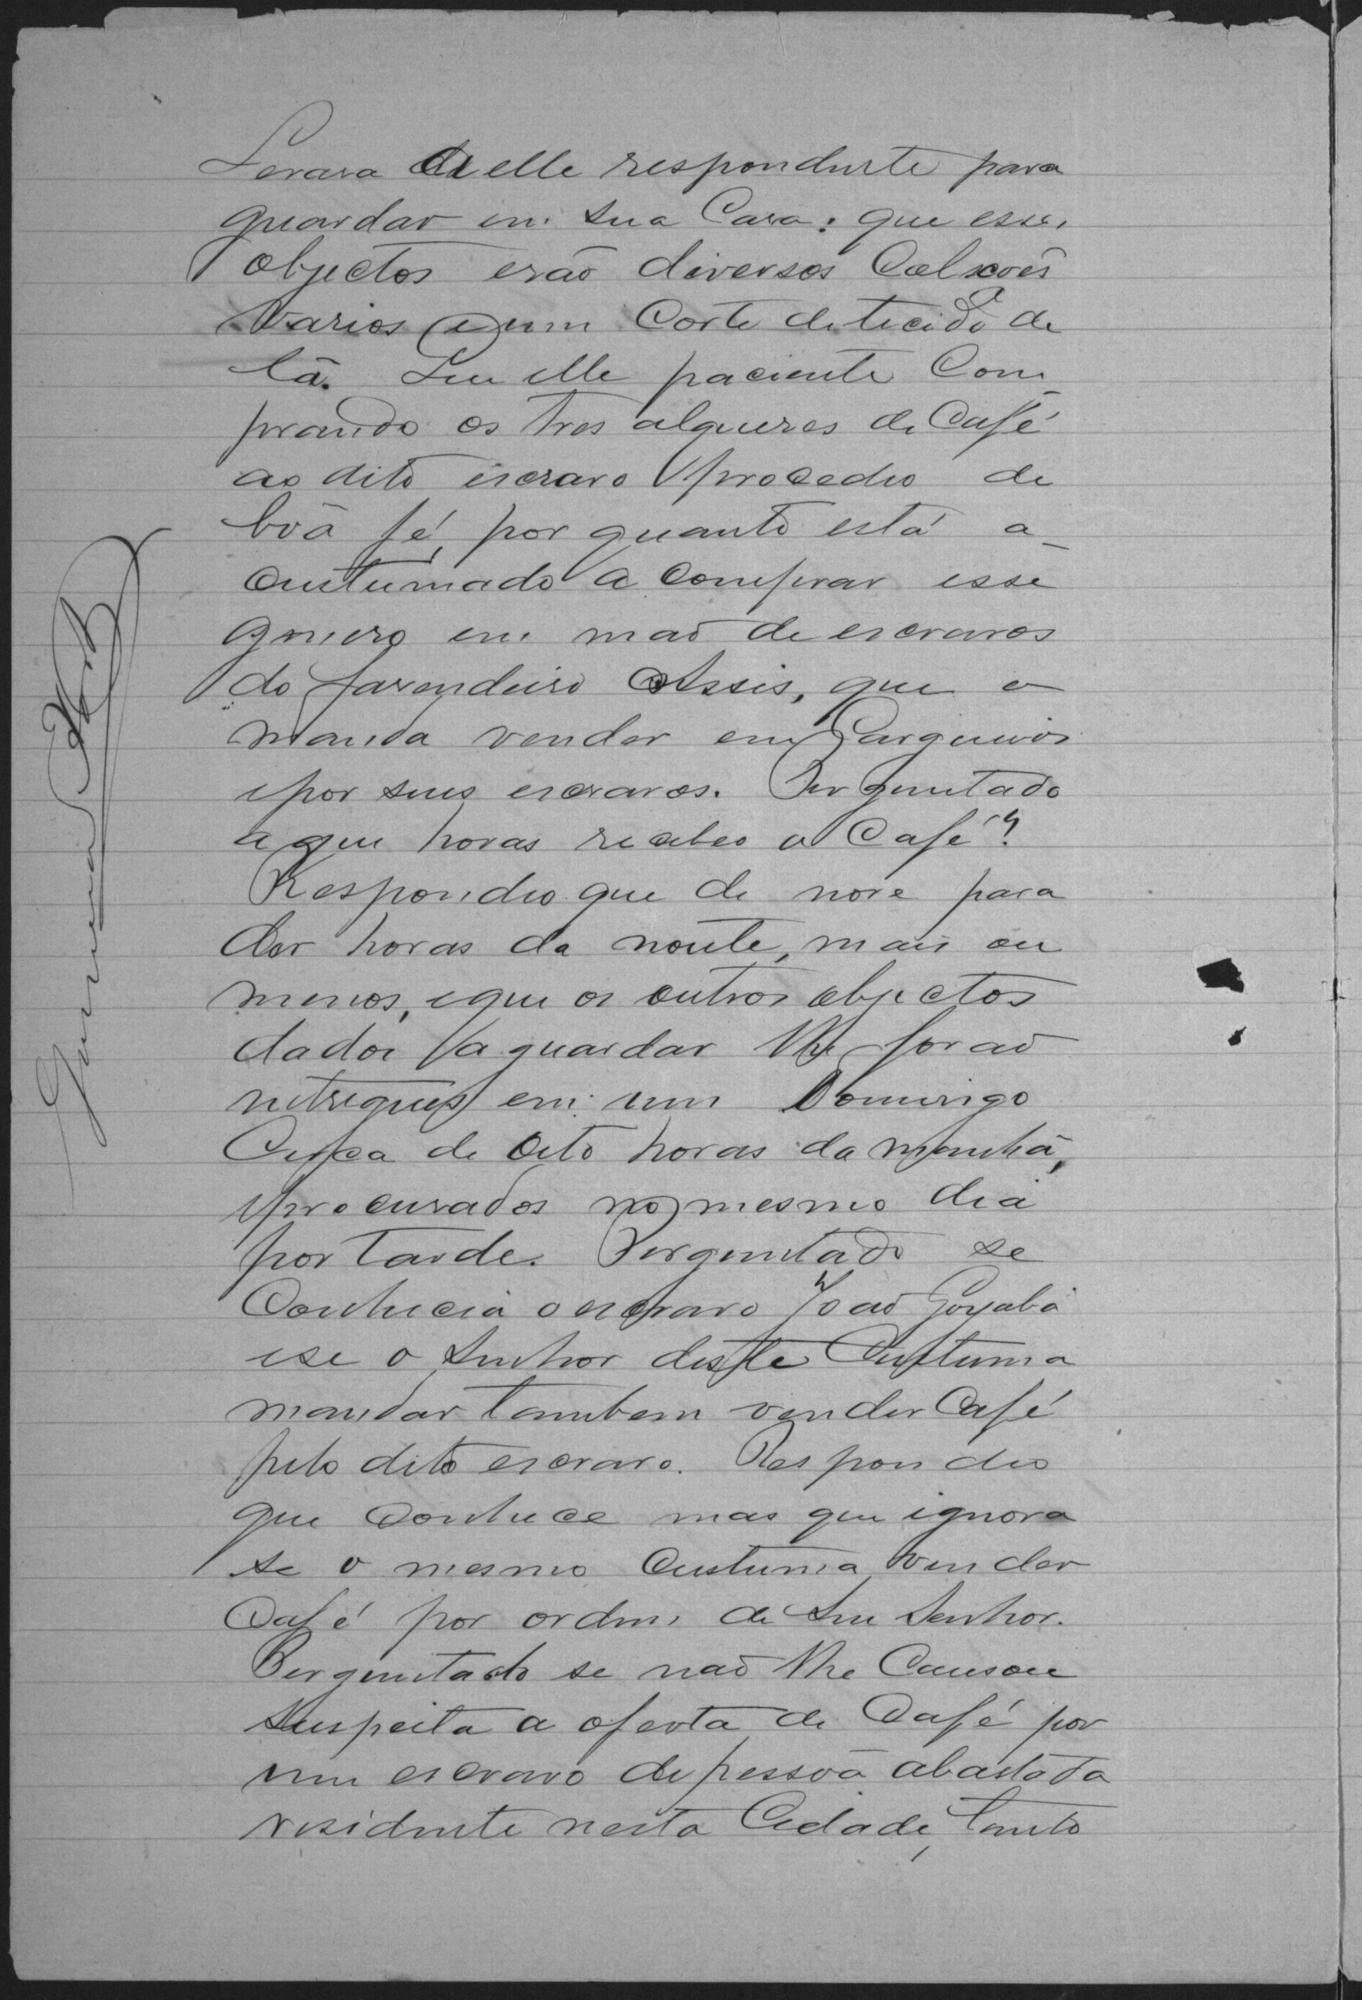 levara a elle respondente para
guardar em sua casa: que esses
objectos erão diversos calções
varios e um corte de tecido de
lã. Que elle paciente com
prando os tres alqueres de café
ao dito escravo procedeo de
boa fé, por quanto está a-
custumado a comprar esse
genero em mão de escravos
do fazendeiro Assis, que o
manda vender em
por seus escravos. Perguntado
a que horas recebeo o café?
Respondeo que de nove para
dez horas da noute, mais ou
menos, e que os outros objectos
dados a guardar lhe forão
entregues em um Domingo
cerca de oito horas da manhã,
e procurados no mesmo dia
por tarde. Perguntado se
conhecia o escravo João Goyaba
e se o senhor deste custuma
mandar tambem vender café
pelo dito escravo. Respondeo
que conhece mas que ignora
se o mesmo custuma vender
café por ordem de seu senhor.
Perguntado se não lhe causou
suspeita a oferta de café por
um escravo de pessoa abastada
residente nesta Cidade, tanto